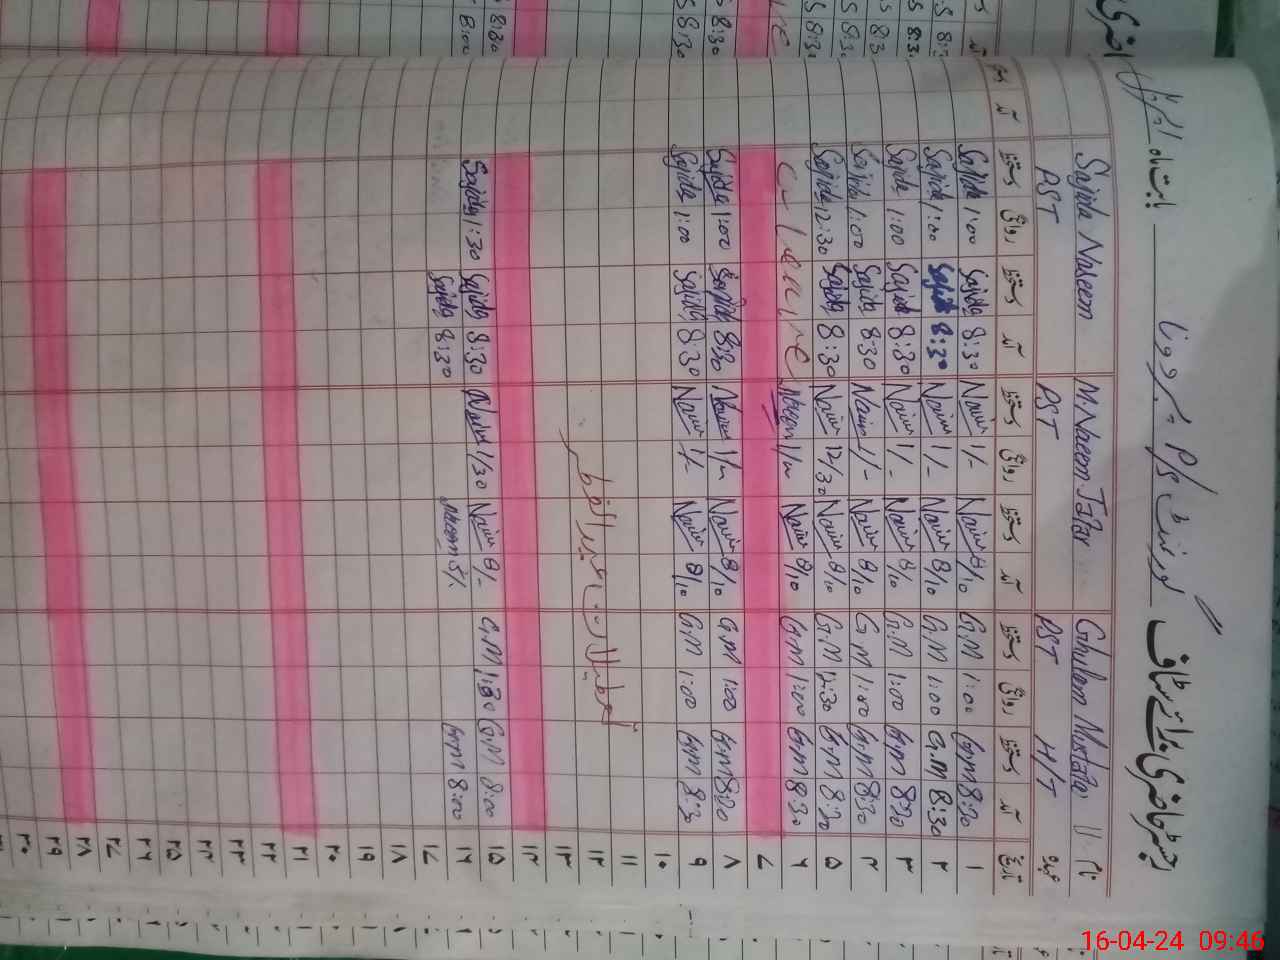 رجسٹر حاضری برائے سٹاف گورنمنٹ P/S
بابت ماہ اپریل
نام Ghulam Mustafa M. Naeem Jafar Sajida Naseem
عہدہ H/T PST PST PST
تاریخ آمد دستخط روانگی دستخط آمد دستخط روانگی دستخط آمد دستخط روانگی دستخط آمد
۱ 8:30 G.M 1:00 G.M 8/10 Naeem 1/- Naeem 8:30 Sajida 1:00 Sajida
۲ 8:30 G.M 1:00 G.M 8/10 Naeem 1/- Naeem 8:30 Sajida 1:00 Sajida
۳ 8:30 G.M 1:00 G.M 8/10 Naeem 1/- Naeem 8:30 Sajida 1:00 Sajida
۴ 8:30 G.M 1:00 G.M 8/10 Naeem 1/- Naeem 8:30 Sajida 1:00 Sajida
۵ 8:30 G.M 12:30 G.M 8/10 Naeem 12/30 Naeem 8:30 Sajida 12:30 Sajida
۶ 8:30 G.M 1:00 G.M 8/10 Naeem 1/- Naeem C-Leave
۷
۸ 8:30 G.M 1:00 G.M 8/10 Naeem 1/- Naeem 8:30 Sajida 1:00 Sajida
۹ 8:30 G.M 1:00 G.M 8/10 Naeem 1/- Naeem 8:30 Sajida 1:00 Sajida
۱۰
۱۱
۱۲ تعطیلات عید الفطر
۱۳
۱۴
۱۵ 8:00 G.M 1:30 G.M 8/- Naeem 1/30 Naeem 8:30 Sajida 1:30 Sajida
۱۶ 8:00 G.M Naeem 8:30 Sajida
۱۷
۱۸
۱۹
۲۰
۲۱
۲۲
۲۳
۲۴
۲۵
۲۶
۲۷
۲۸
۲۹
۳۰
16-04-24 09:46